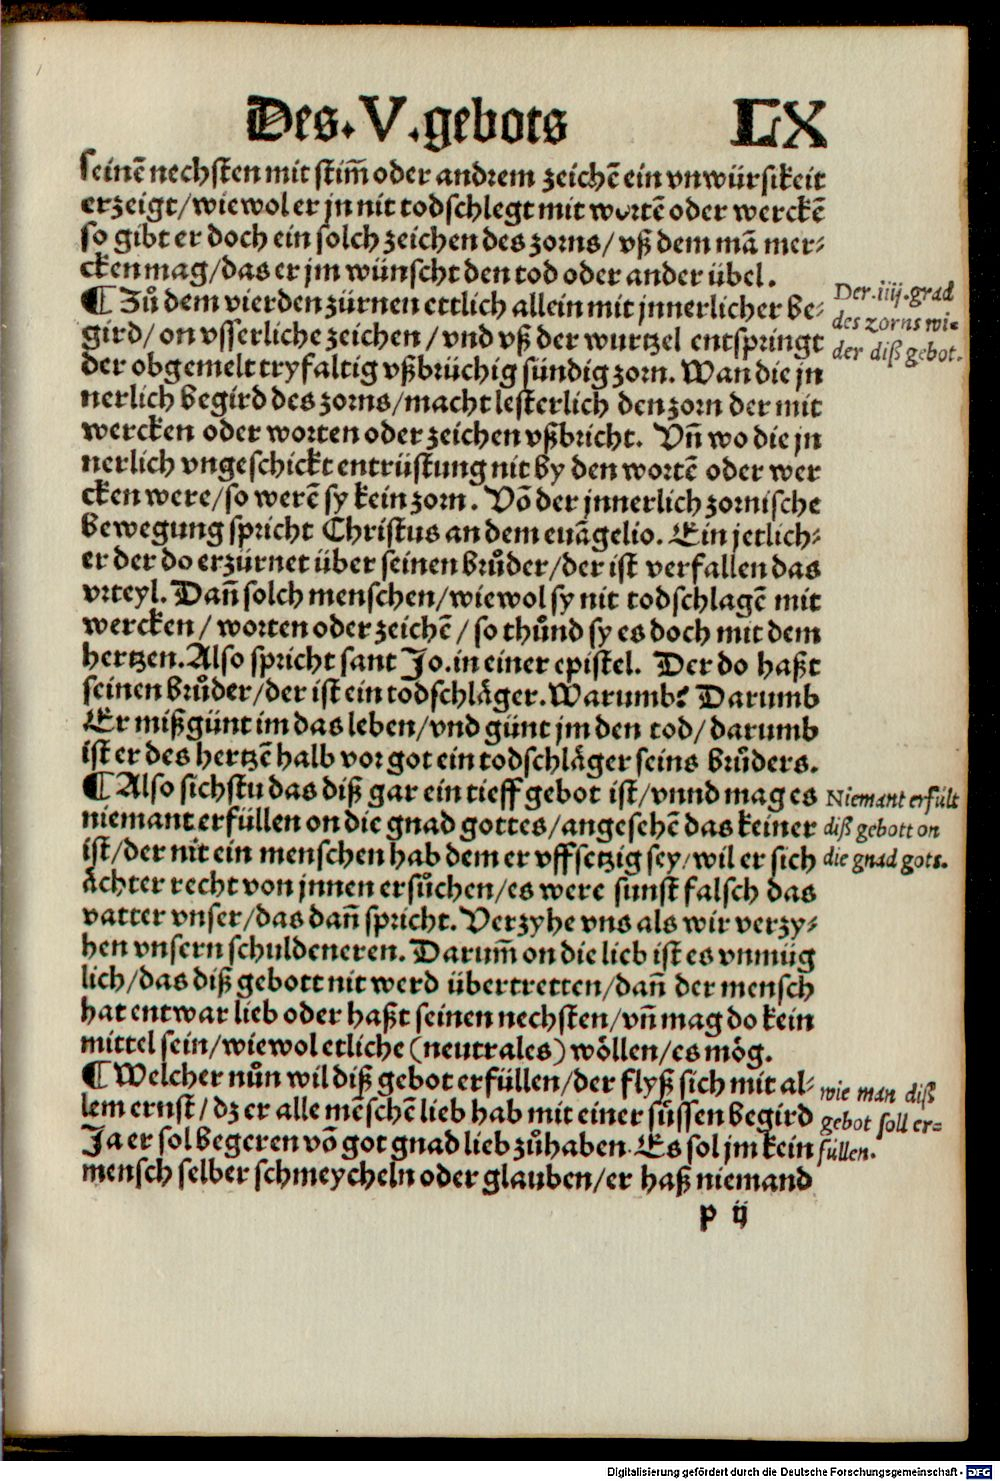 Des. V. gebots LX
seinē nechsten mit stim̄ oder andrem zeichē ein vnwürsikeit
erzeigt/wiewol er jn nit todschlegt mit wortē oder werckē
so gibt er doch ein solch zeichen des zorns/ vß dem mā mer-
cken mag/das er jm wünscht den tod oder ander übel.
¶ Zů dem vierden zürnen ettlich allein mit jnnerlicher be-
gird/ on vsserliche zeichen / vnd vß der wurtzel entspringt
der obgemelt tryfaltig vßbrüchig sündig zorn. Wan die jn
nerlich begird des zorns/macht lesterlich den zorn der mit
wercken oder worten oder zeichen vßbricht. Vn̄ wo die jn
nerlich vngeschickt entrüstung nit by den wortē oder wer
cken were/so werē sy kein zorn. Vō der jnnerlich zornische
bewegung spricht Christus an dem euāgelio. Ein jetlich-
er der do erzürnet über seinen brůder/der ist verfallen das
vrteyl. Dan̄ solch menschen/wiewol sy nit todschlagē mit
wercken / worten oder zeichē / so thůnd sy es doch mit dem
hertzen. Also spricht sant Jo. in einer epistel. Der do haßt
seinen brůder/der ist ein todschläger. Warumb? Darumb
Er mißgünt im das leben/vnd günt jm den tod/ darumb
ist er des hertzē halb vor got ein todschläger seins brůders.
¶ Also sichstu das diß gar ein tieff gebot ist/vnnd mag es
niemant erfüllen on die gnad gottes/angesehē das keiner
ist/der nit ein menschen hab dem er vffsetzig sey/wil er sich
ächter recht von jnnen ersůchen/es were sunst falsch das
vatter vnser/das dan̄ spricht. Verzyhe vns als wir verzy-
hen vnsern schuldeneren. Darum̄ on die lieb ist es vnmüg
lich/das diß gebott nit werd übertretten/dan̄ der mensch
hat entwar lieb oder haßt seinen nechsten/vn̄ mag do kein
mittel sein/wiewol etliche (neutrales) wöllen/es mög.
¶ Welcher nůn wil diß gebot erfüllen/der flyß sich mit al-
lem ernst/ dz er alle mēschē lieb hab mit einer sůssen begird
Ja er sol begeren vō got gnad lieb zůhaben. Es sol jm kein
mensch selber schmeycheln oder glauben/er haß niemand
p ij
Der .iiij. grad
des zorns wi-
der diß gebot.
Niemant erfült
diß gebott on
die gnad gots.
wie man diß
gebot soll er-
füllen.
Digitalisierung gefördert durch die Deutsche Forschungsgemeinschaft - DFG